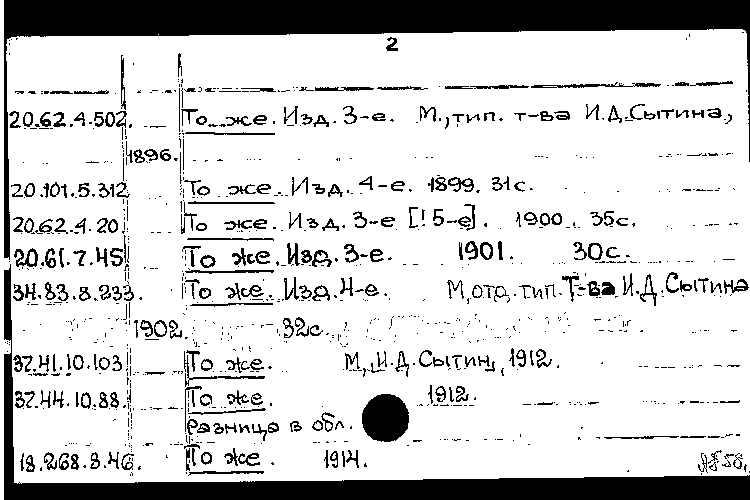 2
20.62.4.502. То же. Изд. 3-е. М., тип. т-ва И.Д.Сытина,
1896.
20.101.5.312 То же. Изд. 4-е. 1899. 31с.
20.62.4.20. То же. Изд. 3-е [! 5-е]. 1900. 35с.
20.61.7.45 То же. Изд. 3-е. 1901. 30с.
34.83.8.233. То же. Изд. 4-е. М, отд. тип. Т-ва И.Д.Сытина
1902. 32с.
37.41.10.103 То же. М, И.Д.Сытин, 1912.
37.44.10.88. То же. 1912.
Разница в обл.
18.268.8.46. То же. 1914.